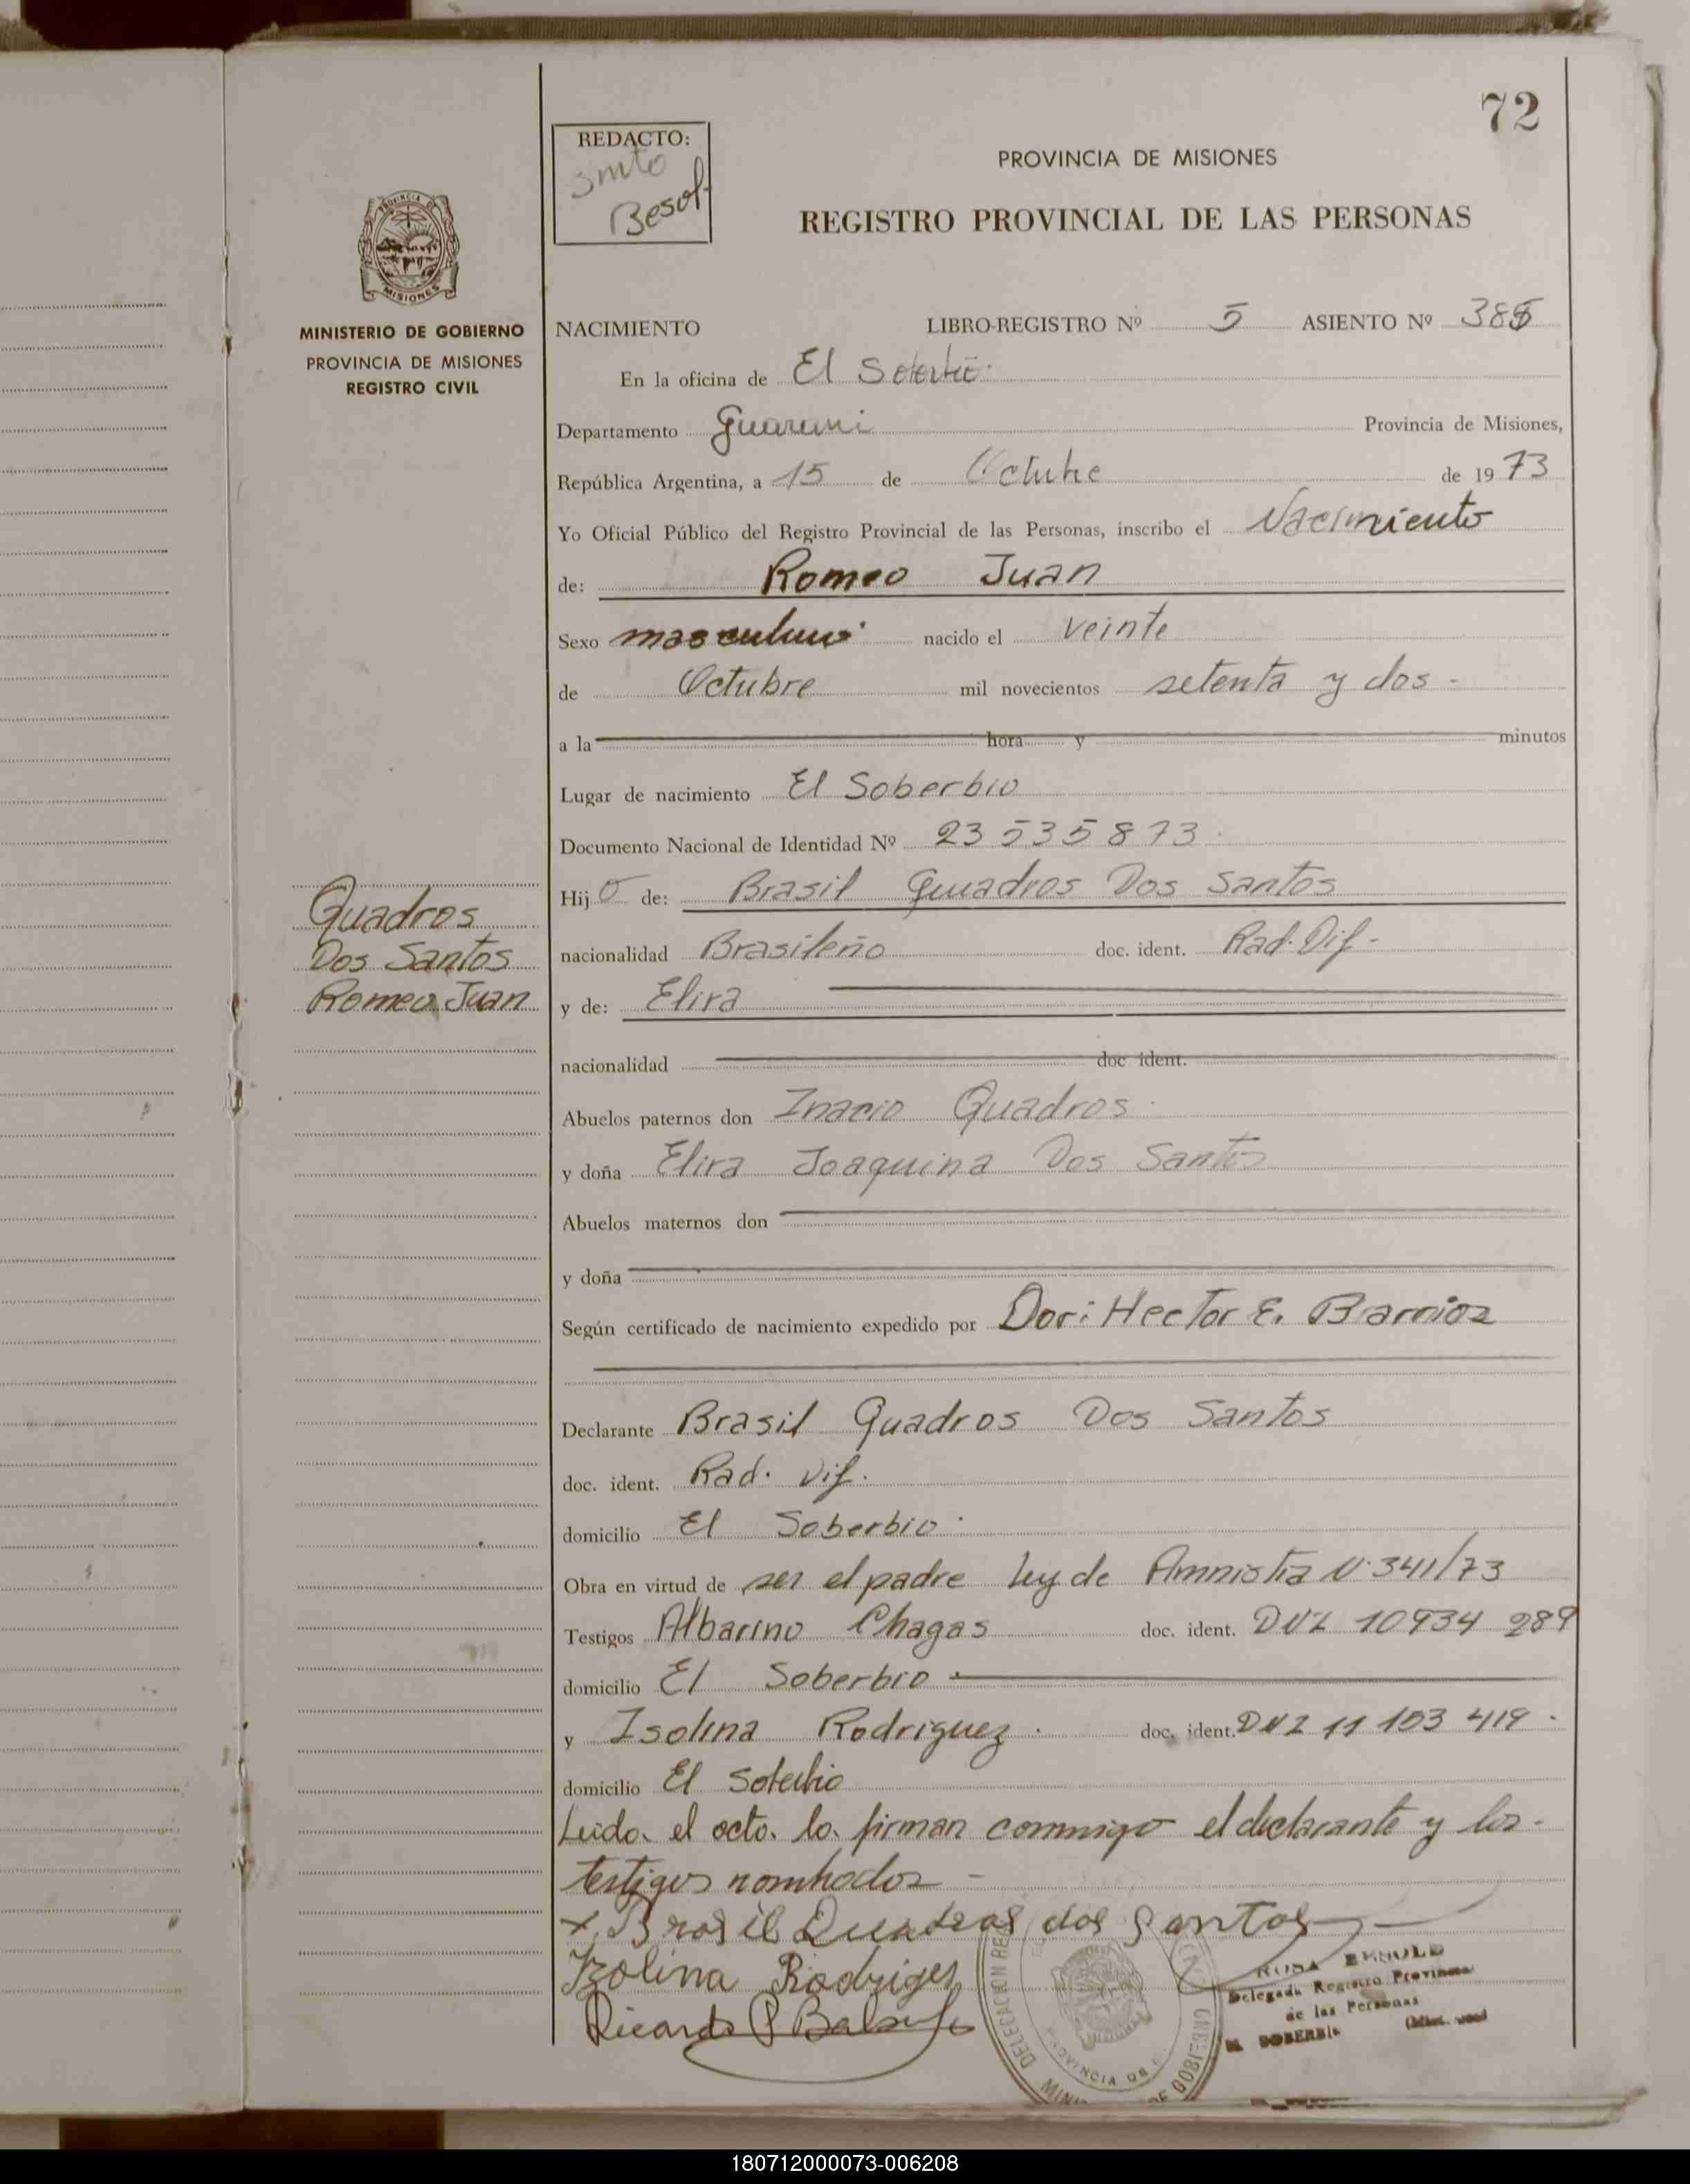 72
REDACTO:
PROVINCIA DE MISIONES
REGISTRO PROVINCIAL DE LAS PERSONAS
MISIONES
MINISTERIO DE GOBIERNO
PROVINCIA DE MISIONES
REGISTRO CIVIL
NACIMIENTO LIBRO-REGISTRO Nº 5 ASIENTO Nº
En la oficina de El Soberbio
Departamento Guarani Provincia de Misiones,
República Argentina, a 15 de Octubre de 1973
Yo Oficial Público del Registro Provincial de las Personas, inscribo el Nacimiento
de: Romeo Juan
Sexo masculino nacido el veinte
de Octubre mil novecientos setenta y dos -
a la hora y minutos
Lugar de nacimiento El Soberbio
Documento Nacional de Identidad Nº 23 535 873
Hijo de: Brasil Quadros Dos Santos
nacionalidad Brasileño doc. ident. Rad. Dif -
y de: Elira
nacionalidad doc ident.
Abuelos paternos don Inacio Quadros
y doña Elira Joaquina Dos Santos
Abuelos maternos don
y doña
Según certificado de nacimiento expedido por Dor: Hector E. Barrios
Quadros
Dos Santos
Romeo Juan
Declarante Brasil Quadros Dos Santos
doc. ident. Rad. Dif.
domicilio El Soberbio
Obra en virtud de ser el padre Ley de Amnistia N. 341/73
Testigos Albarino Chagas doc. ident. DNI 10934 289
domicilio El Soberbio
y Isolina Rodriguez doc. ident. DNI 11 103 419
domicilio El Soberbio
Leido el acto lo firman conmigo el declarante y los
testigos nombrados -
x Brasil Quadros dos Santos
Izolina Rodriges
Ricardo
ROSA BESOLD
Delegada Registro Provincial
de las Personas
EL SOBERBIO
180712000073-006208